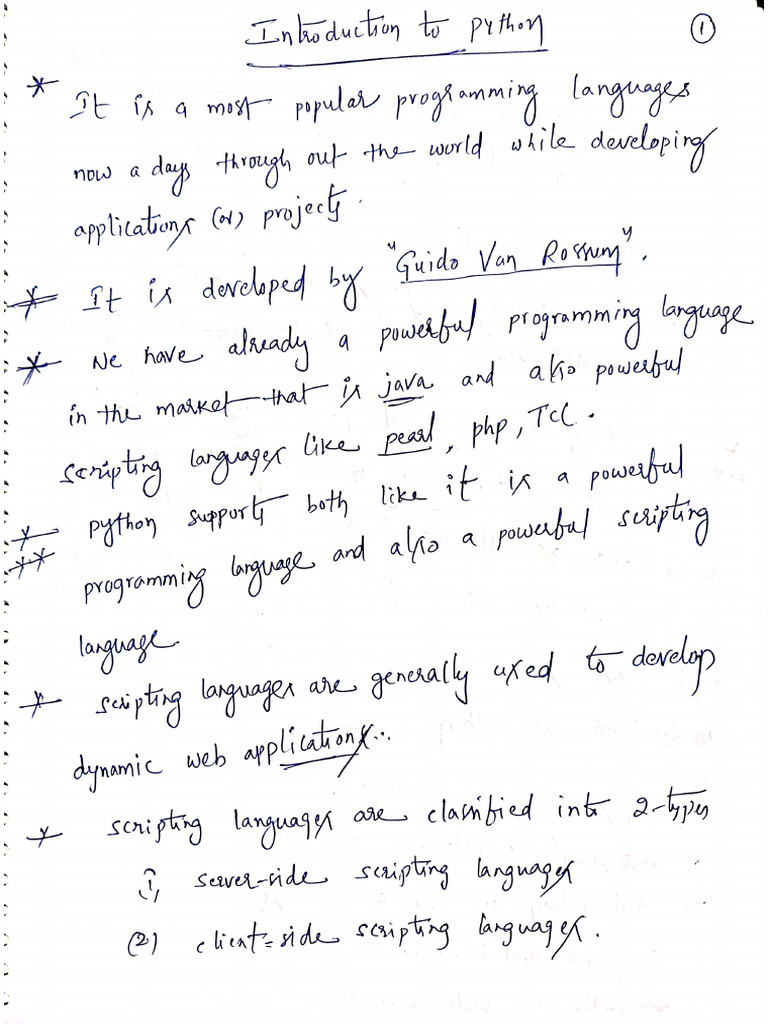 Introduction to python
①
* It is a most popular programming languages
now a days through out the world while developing
applications (or) projects.
* It is developed by "Guido Van Rossum".
* We have already a powerful programming language
in the market that is java and also powerful
scripting languages like pearl, php, TCL.
* python supports both like it is a powerful
** programming language and also a powerful scripting
language.
* scripting languages are generally used to develop
dynamic web applications...
* scripting languages are classified into 2-types
1, server-side scripting languages
(2) client-side scripting languages.